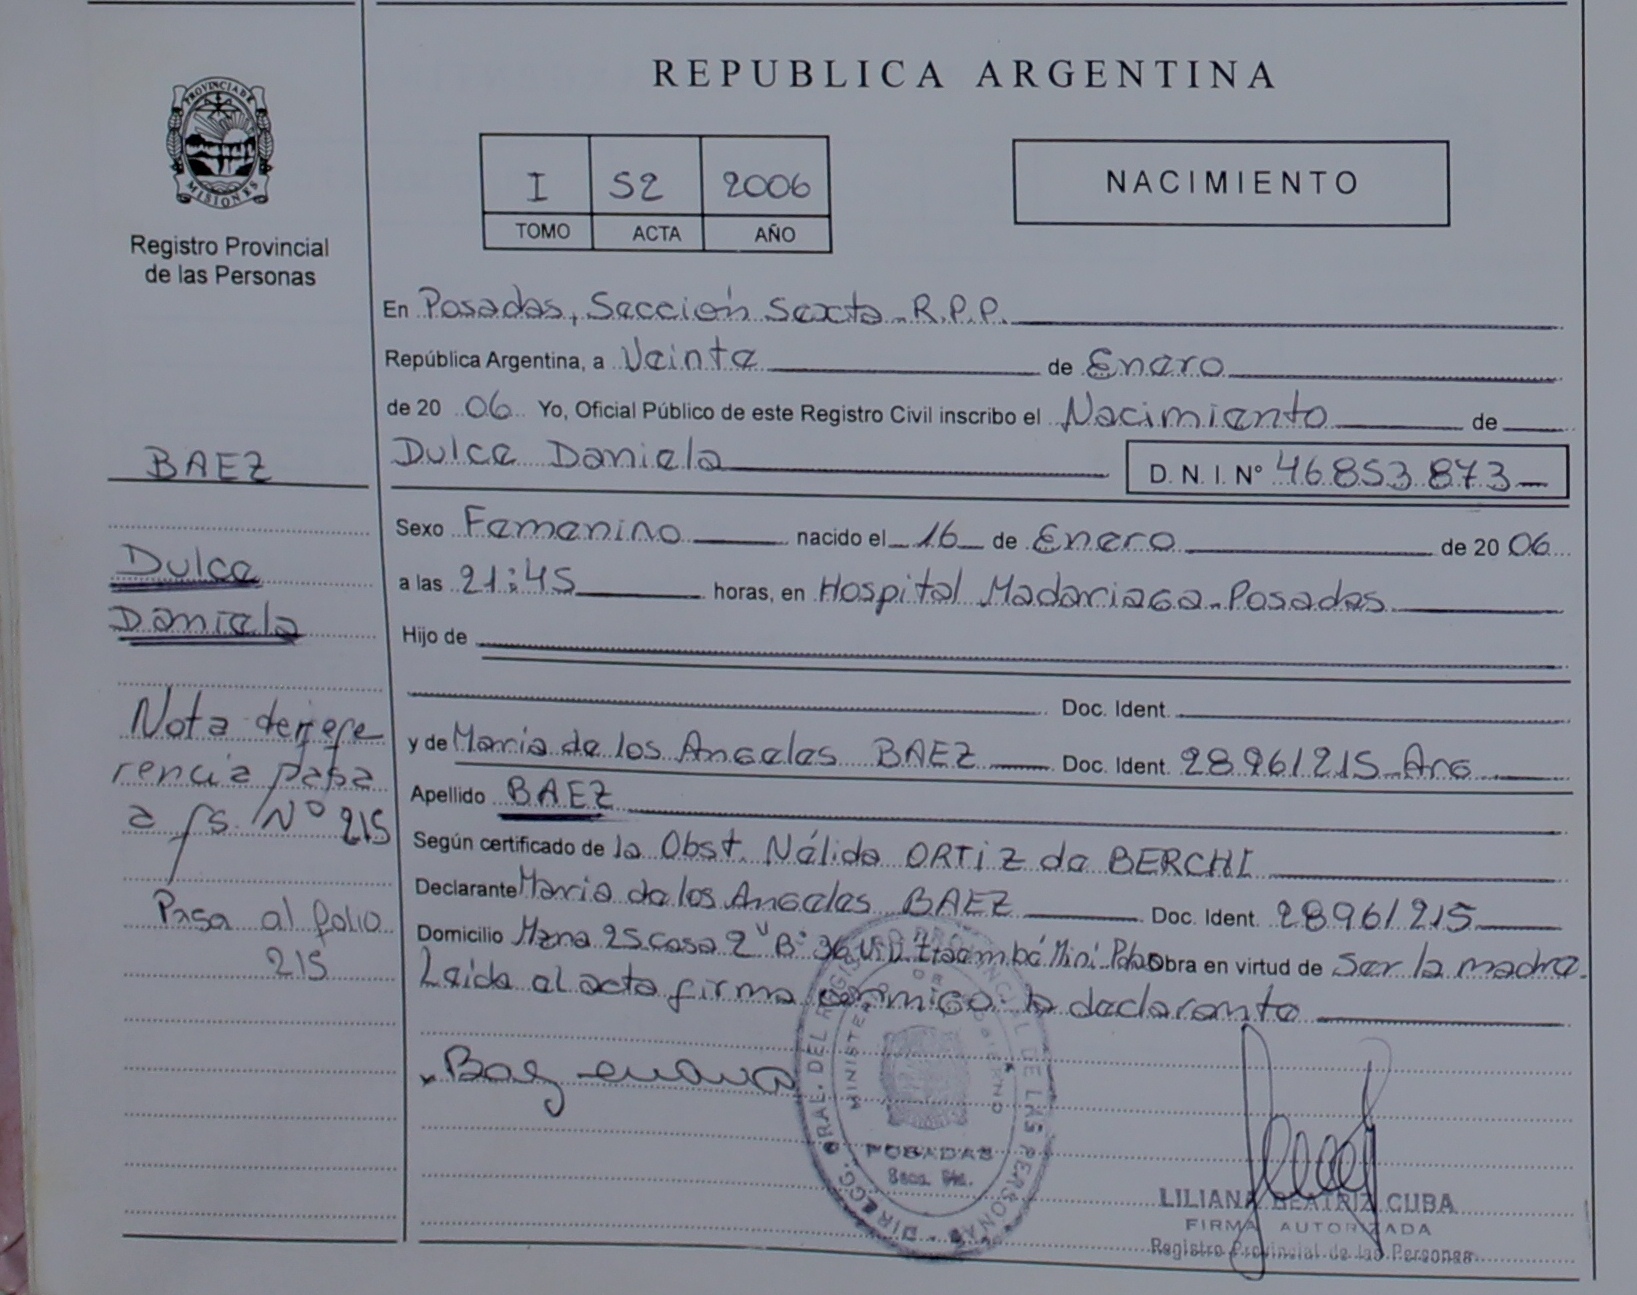 REPUBLICA ARGENTINA
PROVINCIA DE
MISIONES
Registro Provincial
de las Personas
I 52 2006
TOMO ACTA AÑO
NACIMIENTO
En Posadas, Sección Sexta R.P.P.
República Argentina, a Veinte de Enero
de 20 06 Yo, Oficial Público de este Registro Civil inscribo el Nacimiento de
Dulce Daniela D. N. I. N° 46.853.873
Sexo Femenino nacido el 16 de Enero de 20 06
a las 21:45 horas, en Hospital Madariaga - Posadas
Hijo de
Doc. Ident.
y de Maria de los Angeles BAEZ Doc. Ident. 28.961.215 Arg
Apellido BAEZ
Según certificado de la Obst. Nélida ORTIZ de BERCHI
Declarante Maria de los Angeles BAEZ Doc. Ident. 28.961.215
Domicilio Mzna 25 casa 2 Mini Obra en virtud de ser la madre.
Leida el acta firma conmigo la declarante
Baez
BAEZ
Dulce
Daniela
Nota de refe
rencia pasa
a fs. N° 215
Pasa al folio
215
DIRECC. GRAL. DEL REGISTRO PROVINCIAL DE LAS PERSONAS
MINISTERIO DE GOBIERNO
POSADAS
Secc.
LILIANA BEATRIZ CUBA
FIRMA AUTORIZADA
Registro Provincial de las Personas